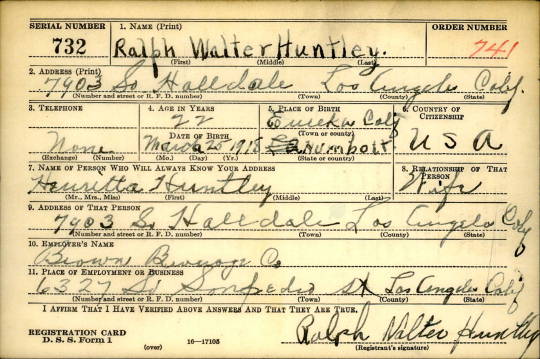 SERIAL NUMBER 1. NAME (Print) ORDER NUMBER
732 Ralph Walter Huntley. 741
(First) (Middle) (Last)
2. ADDRESS (Print)
7903 So Halldale Los Angeles Calif.
(Number and street or R. F. D. number) (Town) (County) (State)
3. TELEPHONE 4. AGE IN YEARS 5. PLACE OF BIRTH 6. COUNTRY OF CITIZENSHIP
22 Eureka Calif
DATE OF BIRTH (Town or county)
None March 25 1918 Humbolt. U S A
(Exchange) (Number) (Mo.) (Day) (Yr.) (State or country)
7. NAME OF PERSON WHO WILL ALWAYS KNOW YOUR ADDRESS 8. RELATIONSHIP OF THAT PERSON
Henrietta Huntley Wife
(Mr., Mrs., Miss) (First) (Middle) (Last)
9. ADDRESS OF THAT PERSON
7903 So Halldale Los Angeles Calif
(Number and street or R. F. D. number) (Town) (County) (State)
10. EMPLOYER'S NAME
Brown Beverage Co
11. PLACE OF EMPLOYMENT OR BUSINESS
6327 So San Pedro St Los Angeles Calif
(Number and street or R. F. D. number) (Town) (County) (State)
I AFFIRM THAT I HAVE VERIFIED ABOVE ANSWERS AND THAT THEY ARE TRUE.
REGISTRATION CARD Ralph Walter Huntley
D. S. S. Form 1 (over) 16—17105 (Registrant's signature)